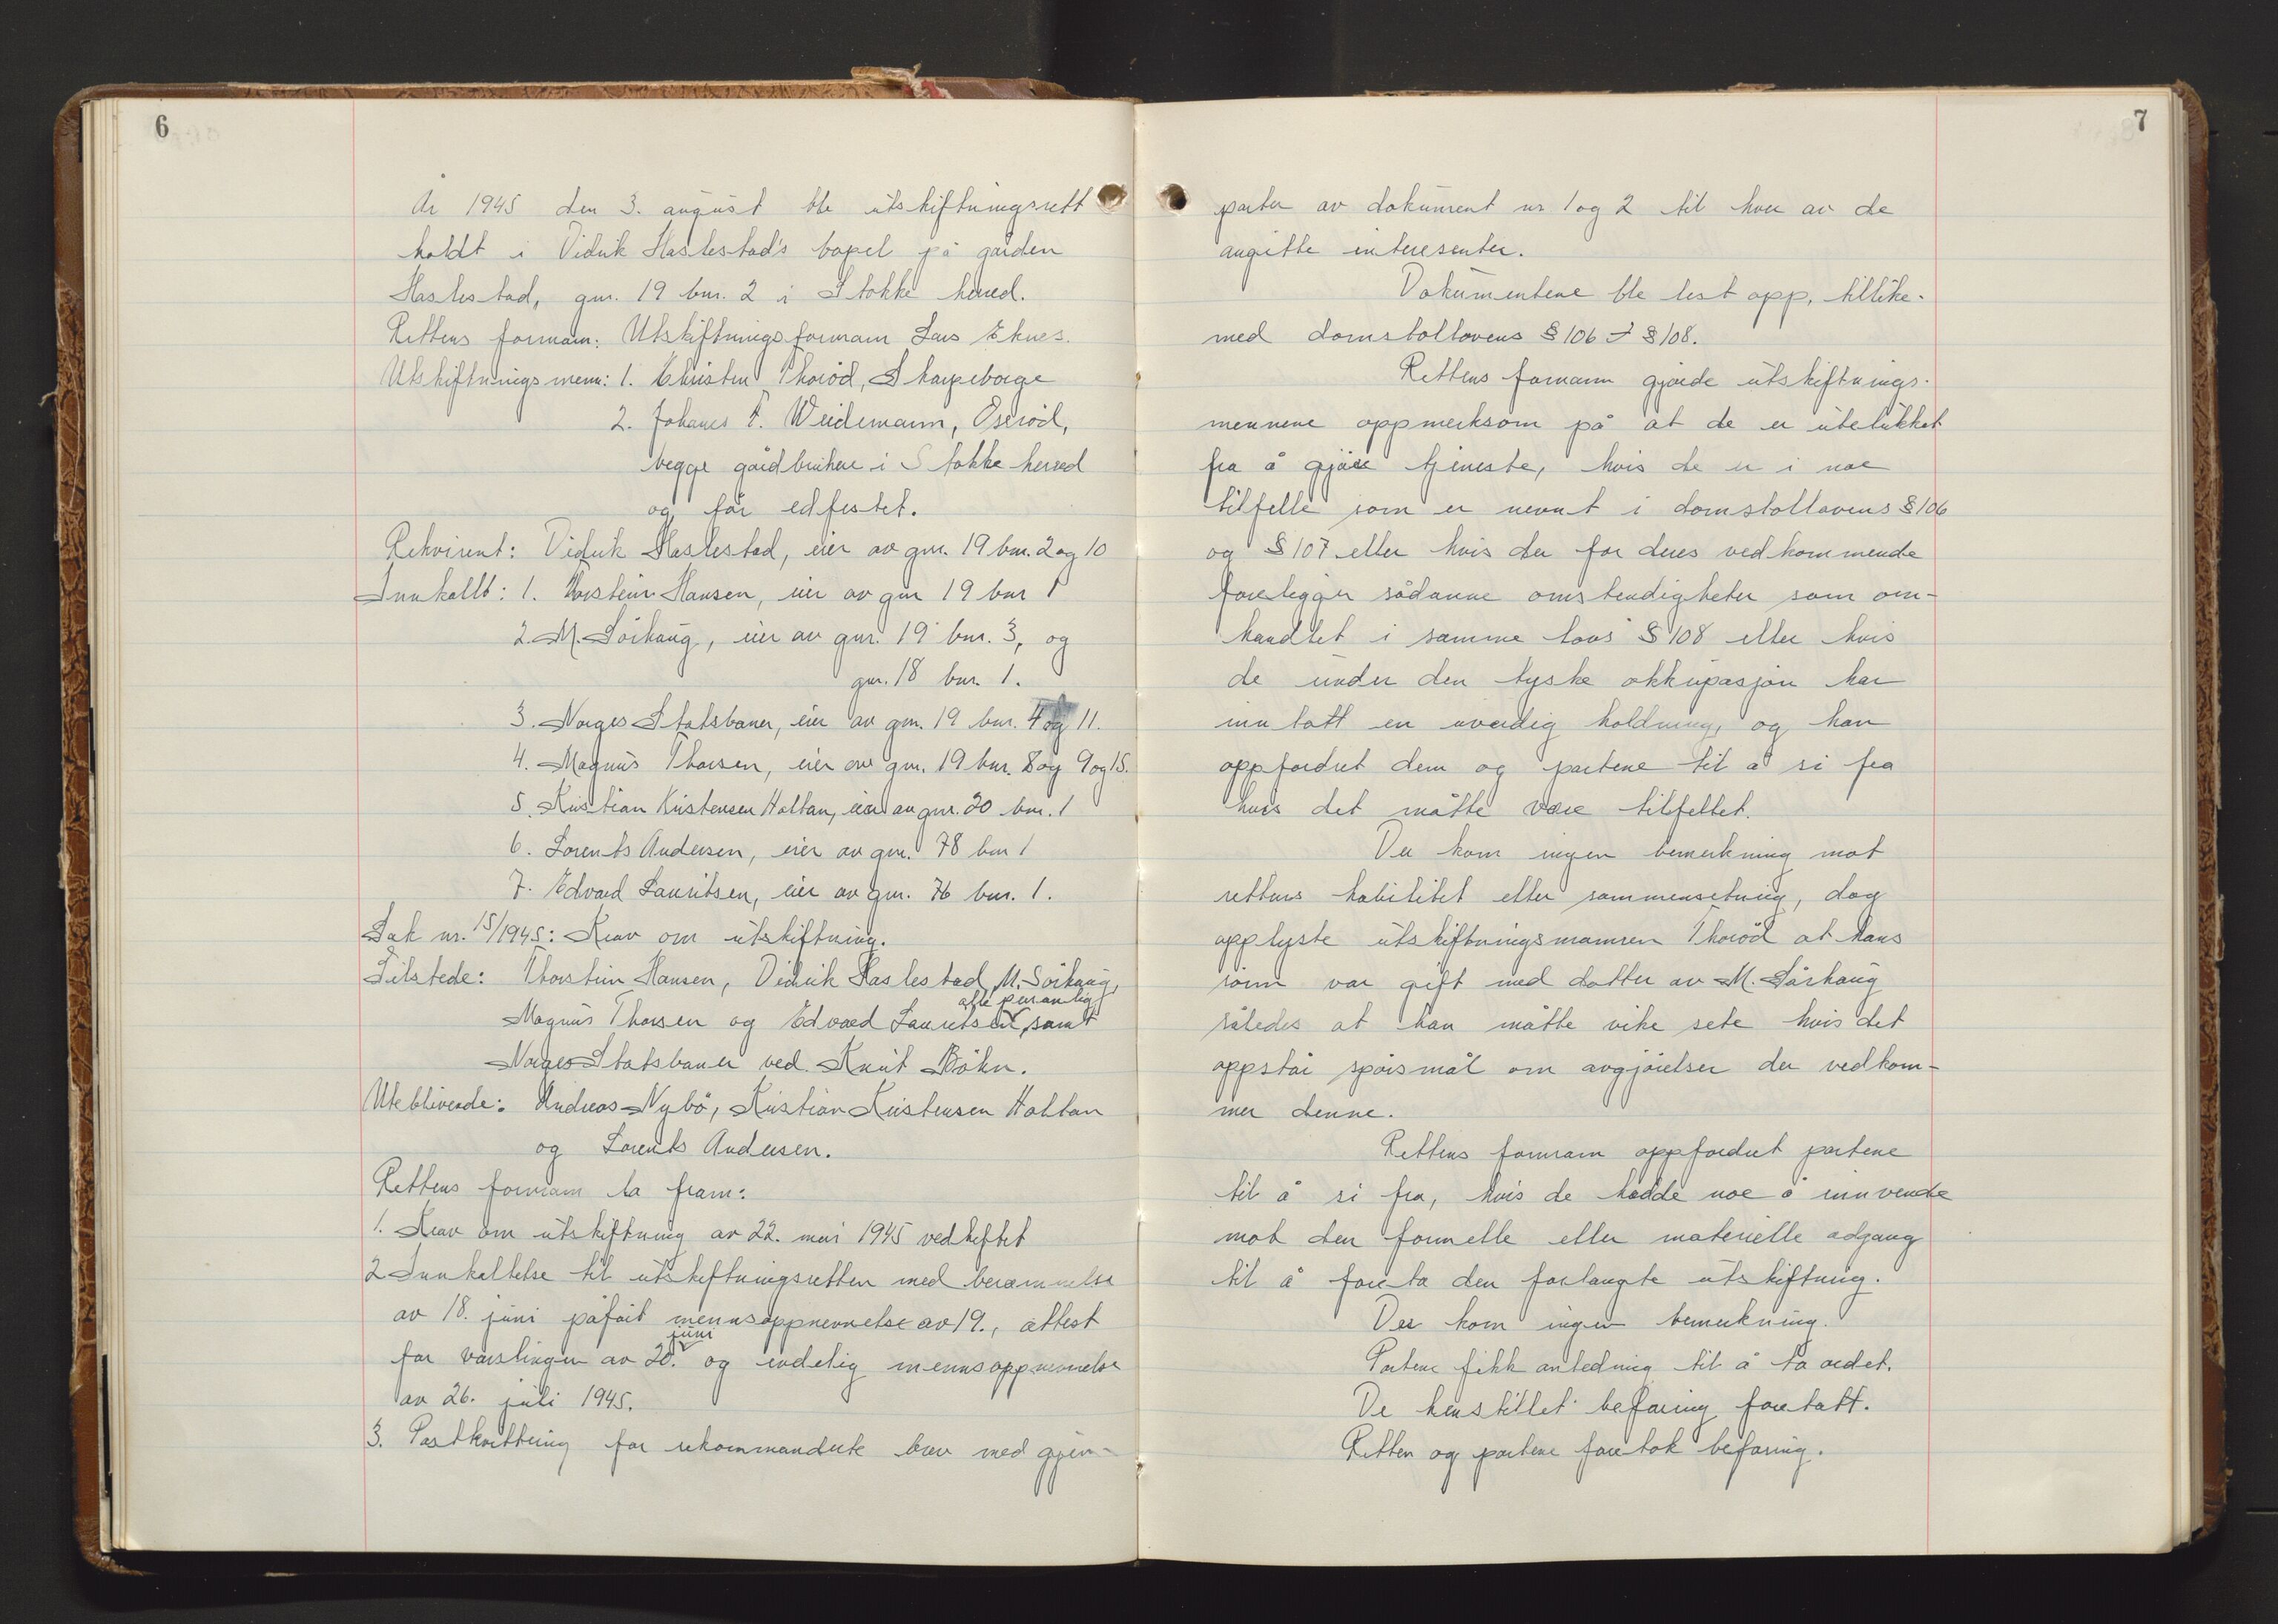 6
År 1945 den 3. august ble utskiftningsrett
holdt i Didrik Haslestad's bopel på gården
Haslestad, gnr. 19 bnr. 2 i Stokke herred.
Rettens formann: Utskiftningsformann Lars Eknes.
Utskiftningsmenn: 1. Christen Thorød, Skarpeborge
2. Johanes F. Weidemann, Oserød,
begge gårdbrukere i Stokke herred
og før edfestet.
Rekvirent: Didrik Haslestad, eier av gnr. 19 bnr. 2 og 10
Innkallt: 1. Thorstein Hansen, eier av gnr 19 bnr 1
2. M. Sørhaug, eier av gnr. 19 bnr. 3, og
gnr. 18 bnr. 1.
3. Norges Statsbaner, eier av gnr. 19 bnr. 4 og 11.
4. Magnus Thorsen, eier av gnr. 19 bnr. 8 og 9 og 15.
5. Kristian Kristensen Holtan, eier av gnr. 20 bnr. 1
6. Lorents Andersen, eier av gnr. 78 bnr 1
7. Edvard Lauritsen, eier av gnr. 76 bnr. 1.
Sak nr. 15/1945: Krav om utskiftning.
Tilstede: Thorstein Hansen, Didrik Haslestad, M. Sørhaug,
alle personlig
Magnus Thorsen og Edvard Lauritsen, samt
Norges Statsbaner ved Knut Bøhn.
Uteblivende: Andreas Nybø, Kristian Kristensen Holtan
og Lorents Andersen.
Rettens formann la fram:
1. Krav om utskiftning av 22. mai 1945 vedheftet
2 Innkallelse til utskiftningsretten med berammelse
av 18. juni påført mennsoppnevnelse av 19., attest
juni
for varslingen av 20. og endelig mennsoppnevnelse
av 26. juli 1945.
3. Postkvittering for rekommanderte brev med gjen-
7
parter av dokument nr 1 og 2 til hver av de
angitte interesenter.
Dokumentene ble lest opp, tillike-
med domstollovens § 106 - § 108.
Rettens formann gjorde utskiftnings-
mennene oppmerksom på at de er utelukket
fra å gjøre tjeneste, hvis de er i noe
tilfelle som er nevnt i domstollovens § 106
og § 107 eller hvis der for deres vedkommende
forelegger sådanne omstendigheter som om-
handlet i samme lovs § 108 eller hvis
de under den tyske okkupasjon har
inntatt en uverdig holdning, og han
oppfordret dem og partene til å si fra
hvis det måtte være tilfellet.
Der kom ingen bemerkning mot
rettens habilitet eller sammensetning, dog
opplyste utskiftningsmannen Thorød at hans
sønn var gift med datter av M. Sørhaug
således at han måtte vike sete hvis det
oppstår spørsmål om avgjørelser der vedkom-
mer denne.
Rettens formann oppfordret partene
til å si fra, hvis de hadde noe å innvende
mot den formelle eller materielle adgang
til å foreta den forlangte utskiftning.
Der kom ingen bemerkning.
Partene fikk anledning til å ta ordet.
De henstillet befaring foretatt.
Retten og partene foretok befaring.